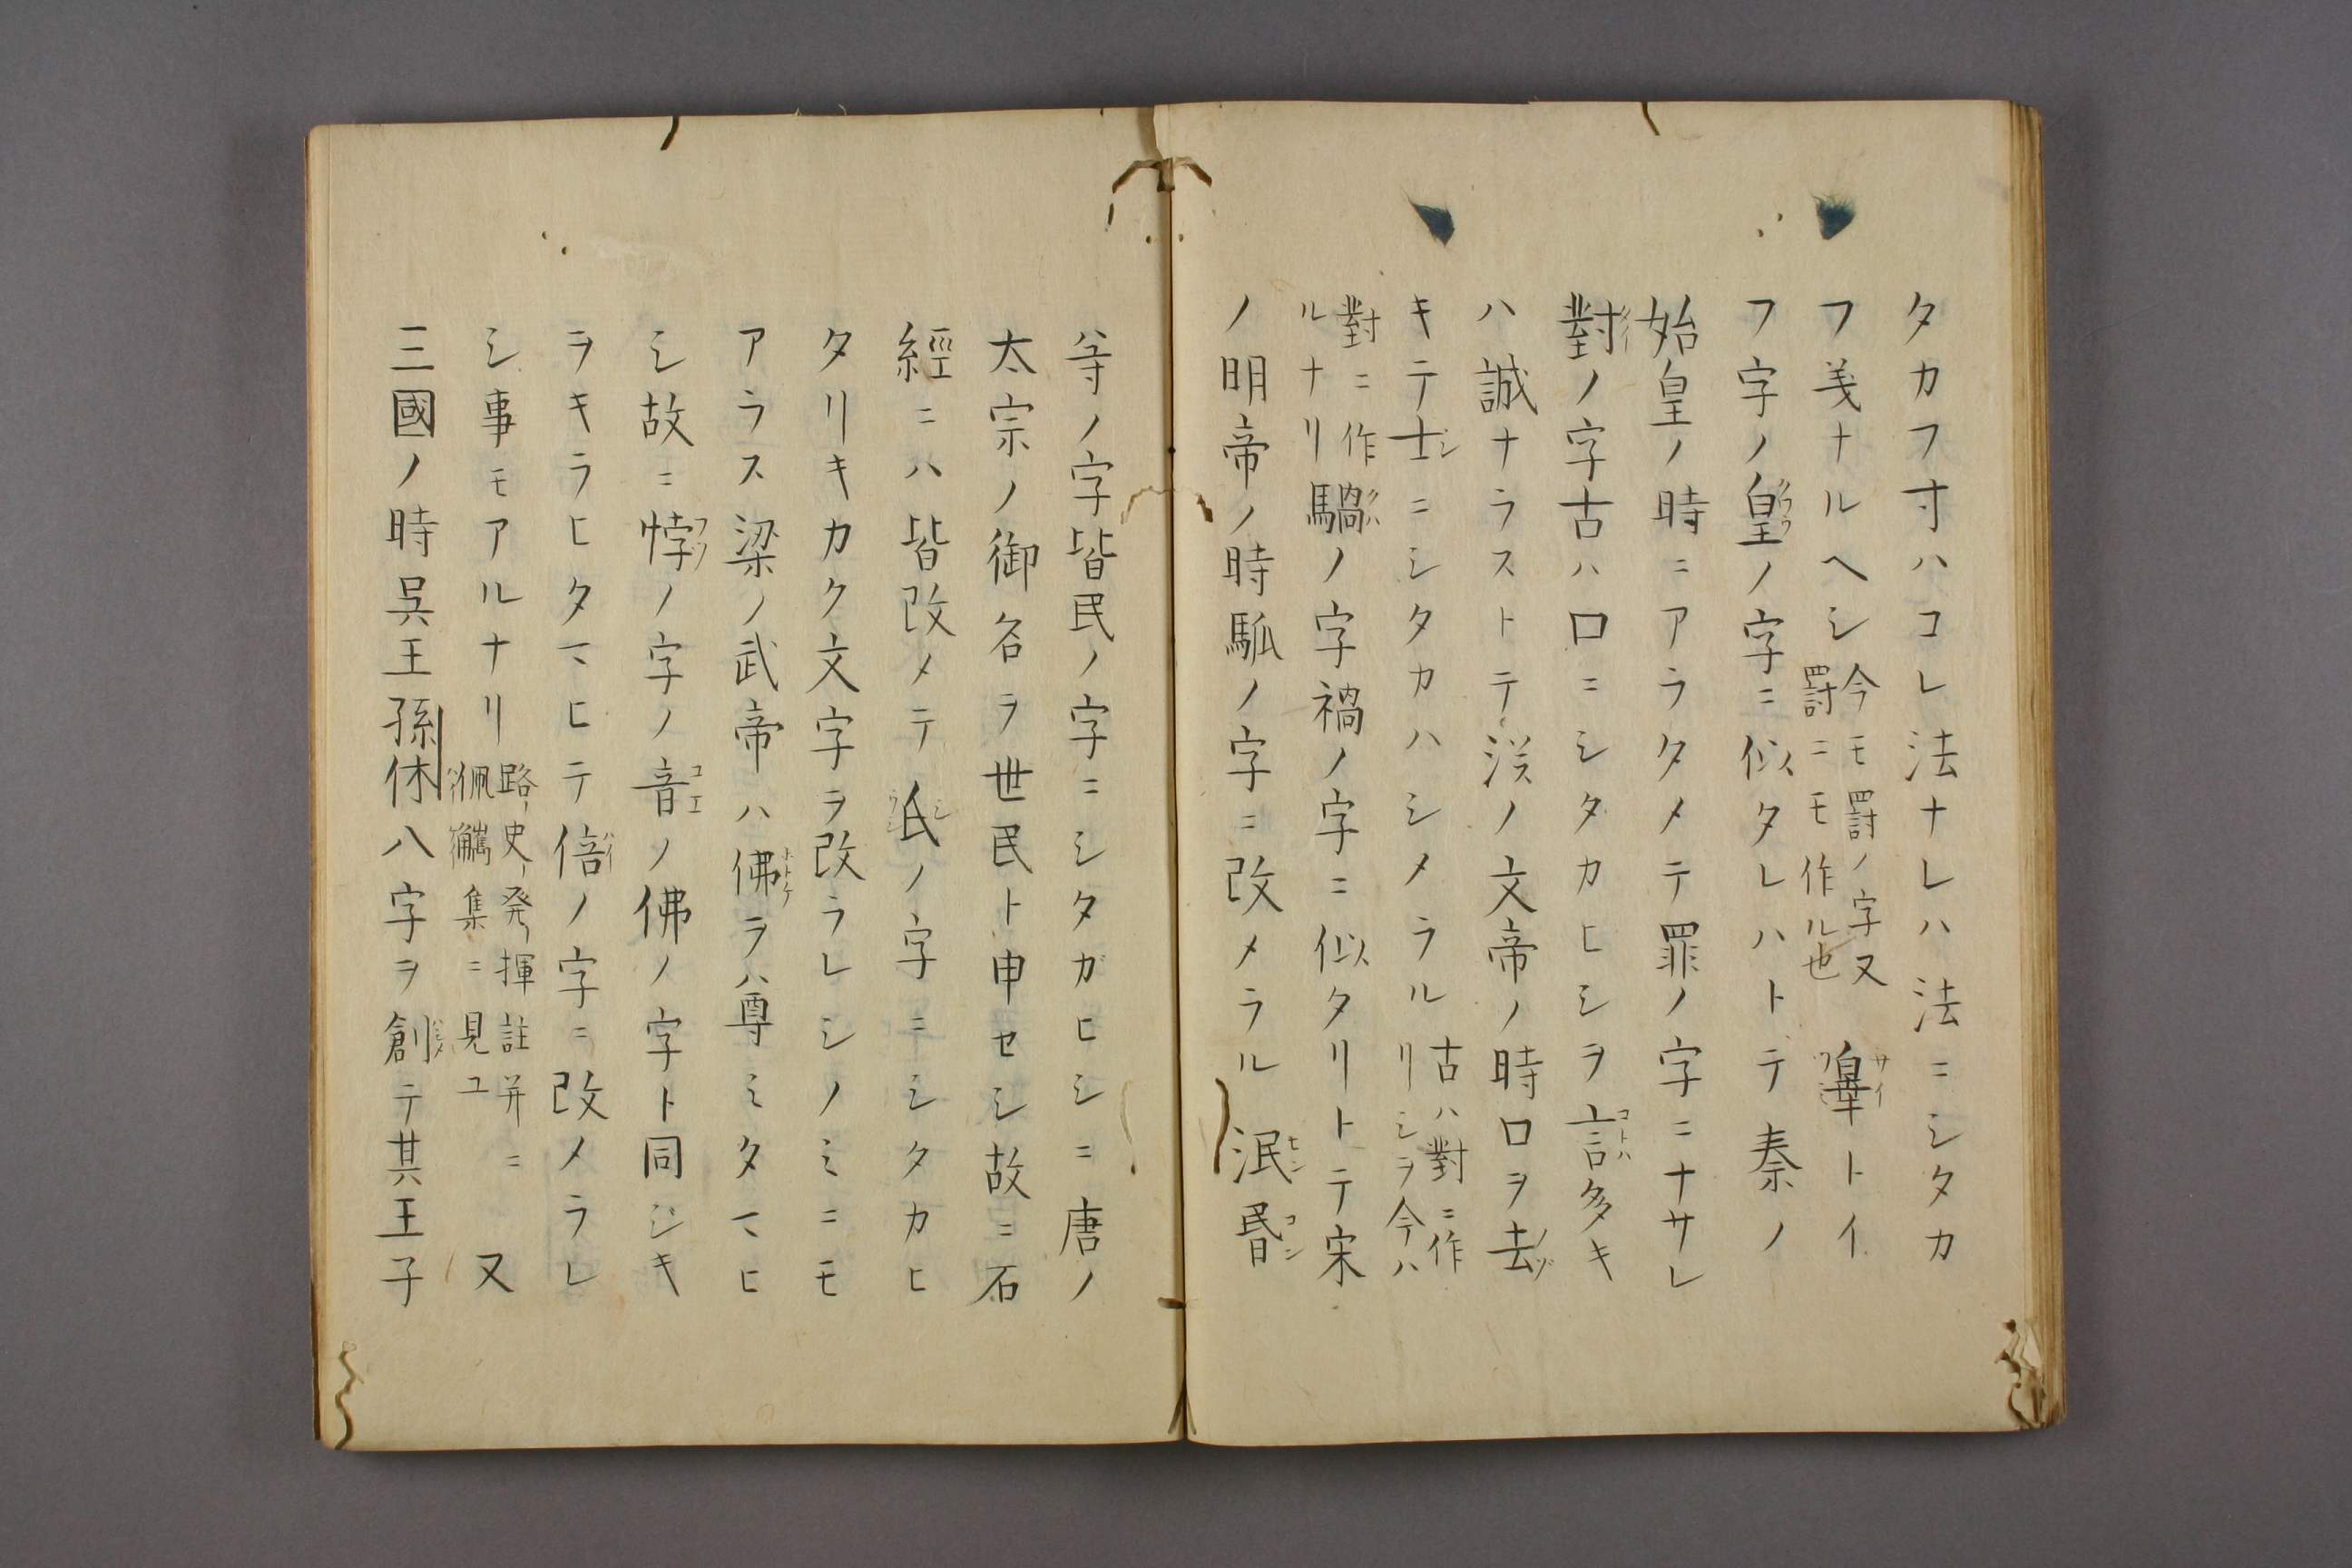 タカフ寸ハコレ法ナレハ法ニシタカ
フ義ナルヘシ今モ罸ノ字又罸ニモ作ル也辠トイ
フ字ノ皇ノ字ニ似タレハトテ秦ノ
始皇ノ時ニアラタメテ罪ノ字ニナサレ
對ノ字古ハ口ニシタカヒシヲ言多キ
ハ誠ナラストテ漢ノ文帝ノ時口ヲ去
キテ士ニシタカハシメラル古ハ對ニ作リシヲ今ハ
對ニ作ルナリ騧ノ字禍ノ字ニ似タリトテ宋
ノ明帝ノ時䯄ノ字ニ改メラル泯昬
等ノ字皆民ノ字ニシタガヒシニ唐ノ
太宗ノ御名ヲ世民ト申セシ故ニ石
經ニハ皆改メテ氏ノ字ニシタカヒ
タリキカク文字ヲ改ラレシノミニモ
アラス梁ノ武帝ハ佛ヲハ尊ミタマヒ
シ故ニ悖ノ字ノ音ノ佛ノ字ト同ジキ
ヲキラヒタマヒテ倍ノ字ニ改メラレ
シ事モアルナリ路史発揮註并ニ佩觿集ニ見ユ又
三國ノ時呉王孫休八字ヲ創テ其王子